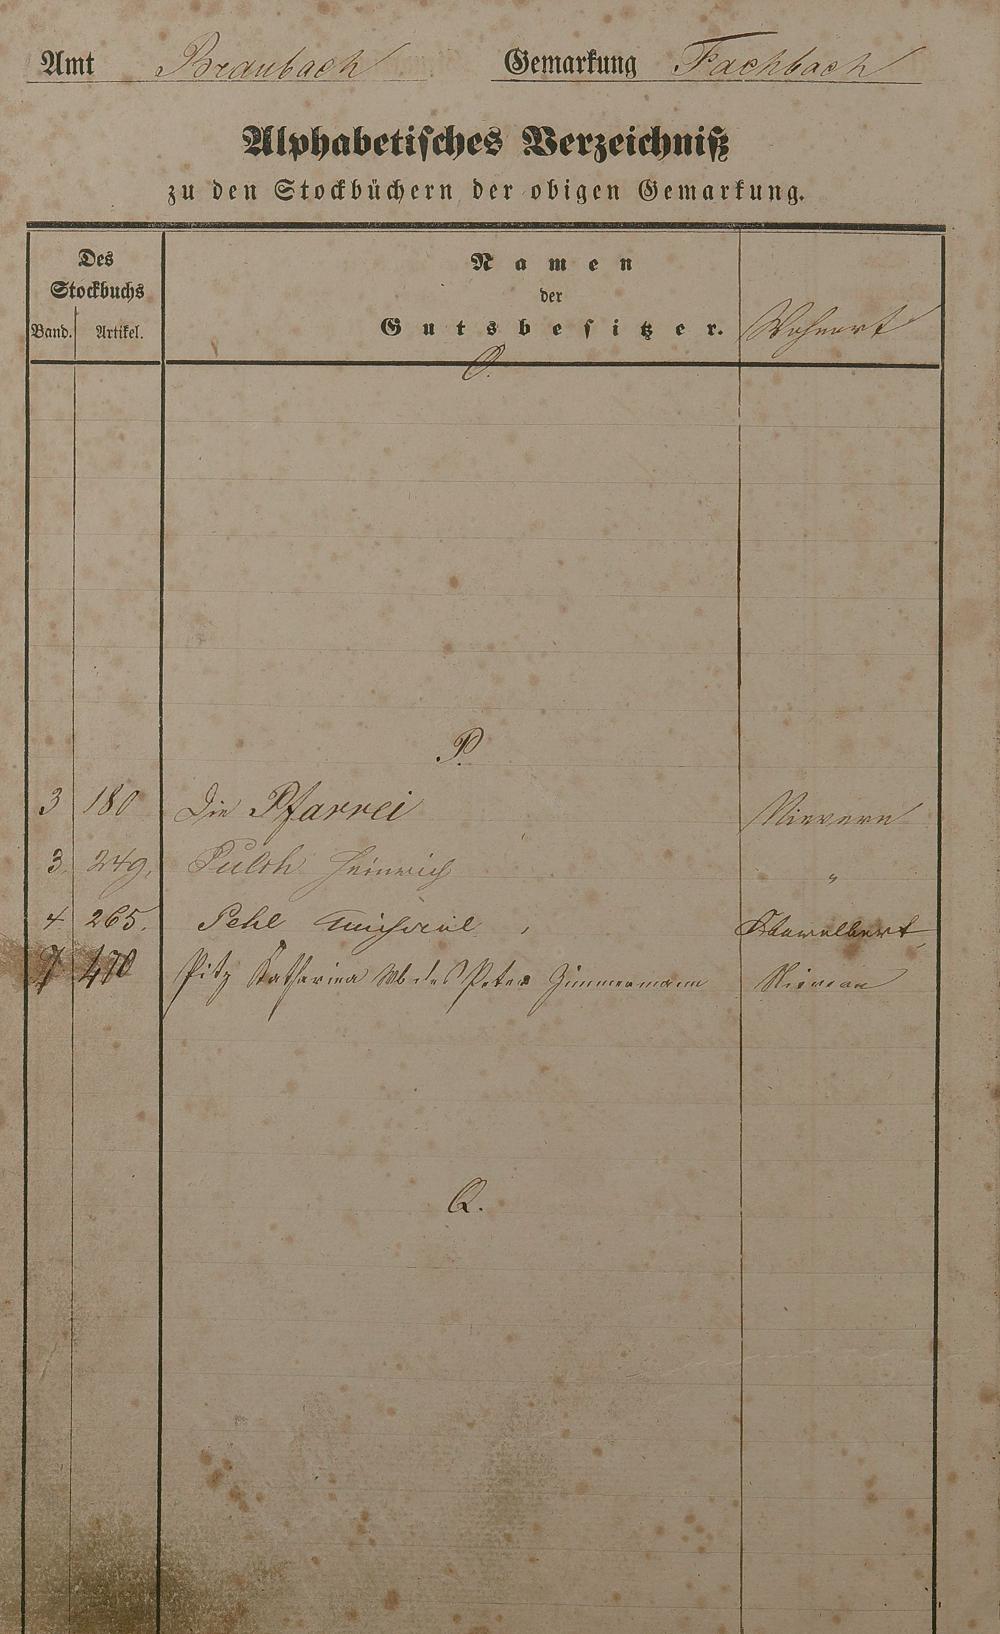 Amt Braubach Gemarkung Fachbach
Alphabetisches Verzeichniß
zu den Stockbüchern der obigen Gemarkung.
Des Stockbuchs
Band. Artikel.
Namen
der
Gutsbesitzer.
Wohnort
O.
P.
3 180 Die Pfarrei Nievern
3. 249. Pulch Heinrich "
4 265. Pehl Michael Oberelbert
7 470 Pitz Katharina Wb des Peter Zimmermann Nievern
Q.